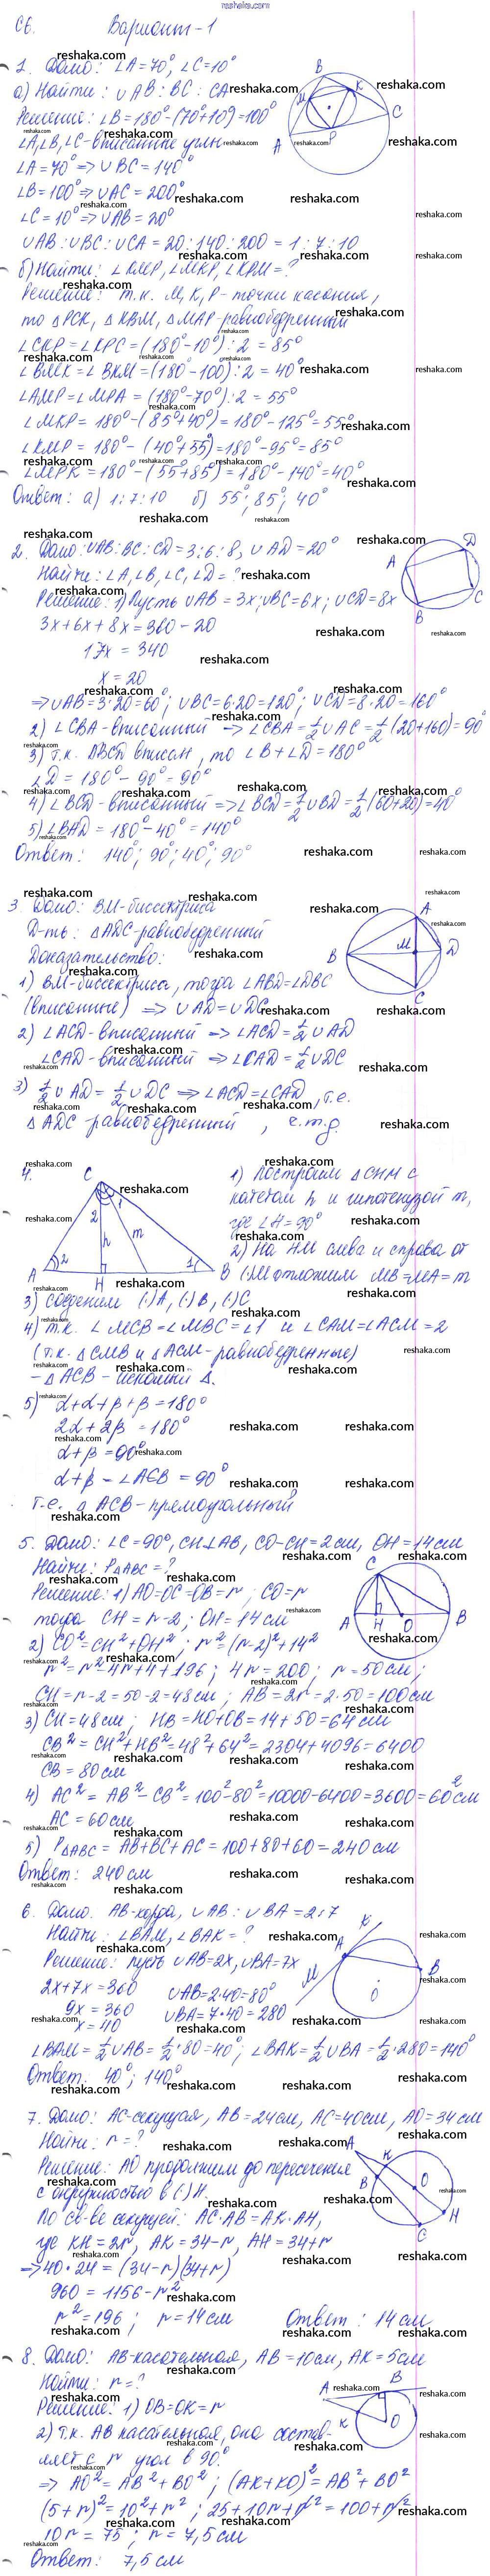 reshaka.com
С6. Вариант-1
1. Дано: ∠A=70°, ∠C=10°
а) Найти: ∪AB : BC : CA
Решение: ∠B=180°-(70°+10°)=100°
∠A, ∠B, ∠C-вписанные углы
∠A=70° => ∪BC=140°
∠B=100° => ∪AC=200°
∠C=10° => ∪AB=20°
∪AB:∪BC:∪CA=20:140:200=1:7:10
б) Найти: ∠KMP, ∠MKP, ∠KPM=?
Решение: т.к. M, K, P-точки касания,
то △PCK, △KBM, △MAP-равнобедренный
∠CKP=∠KPC=(180°-10°):2=85°
∠BMK=∠BKM=(180°-100°):2=40°
∠AMP=∠MPA=(180°-70°):2=55°
∠MKP=180°-(85°+40°)=180°-125°=55°
∠KMP=180°-(40°+55°)=180°-95°=85°
∠MPK=180°-(55°+85°)=180°-140°=40°
Ответ: а) 1:7:10 б) 55°; 85°; 40°
2. Дано: ∪AB:BC:CD=3:6:8, ∪AD=20°
Найти: ∠A, ∠B, ∠C, ∠D=?
Решение: 1) Пусть ∪AB=3x; ∪BC=6x; ∪CD=8x
3x+6x+8x=360-20
17x=340
x=20
=> ∪AB=3·20=60°; ∪BC=6·20=120°; ∪CD=8·20=160°
2) ∠CBA-вписанный => ∠CBA=1/2∪AC=1/2(20+160)=90°
3) т.к. ABCD вписан, то ∠B+∠D=180°
∠D=180°-90°=90°
4) ∠BCD-вписанный => ∠BCD=1/2∪BD=1/2(60+20)=40°
5) ∠BAD=180°-40°=140°
Ответ: 140°; 90°; 40°; 90°
3. Дано: BM-биссектриса
Д-ть: △ADC-равнобедренный
Доказательство:
1) BM-биссектриса, тогда ∠ABD=∠DBC
(вписанные) => ∪AD=∪DC
2) ∠ACD-вписанный => ∠ACD=1/2∪AD
∠CAD-вписанный => ∠CAD=1/2∪DC
3) 1/2∪AD=1/2∪DC => ∠ACD=∠CAD, т.е.
△ADC равнобедренный, ч.т.д.
4. 1) Построим △CHM с
катетом h и гипотенузой m,
где ∠H=90°
2) На HM слева и справа от
(·)M отложим MB=MA=m
3) Соединим (·)A, (·)B, (·)C
4) т.к. ∠MCB=∠MBC=∠1 и ∠CAM=∠ACM=2
(т.к. △CMB и △ACM-равнобедренные)
-△ACB-искомый △.
5) α+α+β+β=180°
2α+2β=180°
α+β=90°
α+β=∠ACB=90°
т.е. △ACB-прямоугольный
5. Дано: ∠C=90°, CH⊥AB, CO-CH=2см, OH=14см
Найти: P△ABC=?
Решение: 1) AO=OC=OB=r; CO=r
тогда CH=r-2; OH=14см
2) CO²=CH²+OH²; r²=(r-2)²+14²
r²=r²-4r+4+196; 4r=200; r=50см;
CH=r-2=50-2=48см; AB=2r=2·50=100см
3) CH=48см; HB=HO+OB=14+50=64см
CB²=CH²+HB²=48²+64²=2304+4096=6400
CB=80см
4) AC²=AB²-CB²=100²-80²=10000-6400=3600=60²см
AC=60см
5) P△ABC=AB+BC+AC=100+80+60=240см
Ответ: 240см
6. Дано. AB-хорда, ∪AB:∪BA=2:7
Найти: ∠BAM, ∠BAK=?
Решение: пусть ∪AB=2x, ∪BA=7x
2x+7x=360 ∪AB=2·40=80°
9x=360 ∪BA=7·40=280
x=40
∠BAM=1/2∪AB=1/2·80=40°; ∠BAK=1/2∪BA=1/2·280=140°
Ответ. 40°; 140°
7. Дано: AC-секущая, AB=24см, AC=40см, AO=34см
Найти: r=?
Решение: AO продолжим до пересечения
с окружностью в (·)H.
По св-ве секущей: AC·AB=AK·AH,
где KH=2r, AK=34-r, AH=34+r
=> 40·24=(34-r)(34+r)
960=1156-r²
r²=196; r=14см Ответ: 14см
8. Дано: AB-касательная, AB=10см, AK=5см
Найти: r=?
Решение: 1) OB=OK=r
2) т.к. AB касательная, она состав-
ляет с r угол в 90°.
=> AO²=AB²+BO²; (AK+KO)²=AB²+BO²
(5+r)²=10²+r²; 25+10r+r²=100+r²
10r=75; r=7,5см
Ответ: 7,5см